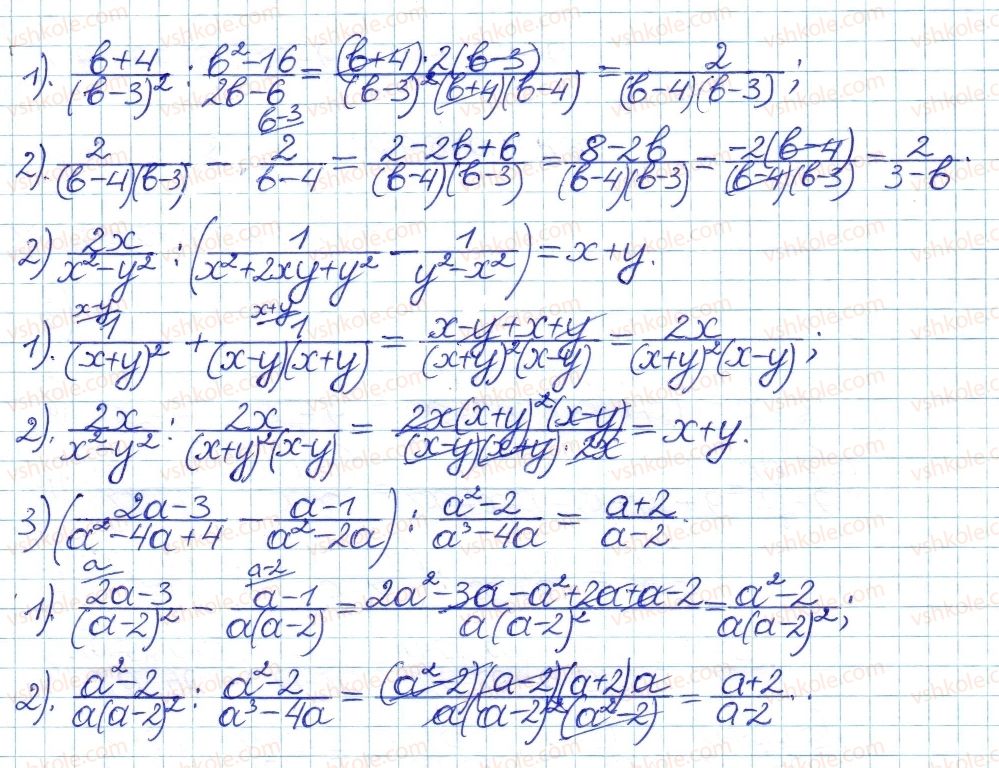 1). (в+4)/(в-3)² : (в²-16)/(2в-6) = ((в+4)·2(в-3))/((в-3)²(в+4)(в-4)) = 2/((в-4)(в-3));
2). 2/((в-4)(в-3)) - 2/(в-4) (в-3) = (2-2в+6)/((в-4)(в-3)) = (8-2в)/((в-4)(в-3)) = (-2(в-4))/((в-4)(в-3)) = 2/(3-в).
2) 2x/(x²-y²) : (1/(x²+2xy+y²) - 1/(y²-x²)) = x+y.
1). 1/(x+y)² (x-y) + 1/((x-y)(x+y)) (x+y) = (x-y+x+y)/((x+y)²(x-y)) = 2x/((x+y)²(x-y));
2). 2x/(x²-y²) : 2x/((x+y)²(x-y)) = (2x(x+y)²(x-y))/((x-y)(x+y)·2x) = x+y.
3) ((2a-3)/(a²-4a+4) - (a-1)/(a²-2a)) : (a²-2)/(a³-4a) = (a+2)/(a-2).
1). (2a-3)/(a-2)² (a) - (a-1)/(a(a-2)) (a-2) = (2a²-3a-a²+2a+a-2)/(a(a-2)²) = (a²-2)/(a(a-2)²);
2). (a²-2)/(a(a-2)²) : (a²-2)/(a³-4a) = ((a²-2)(a-2)(a+2)a)/(a(a-2)²(a²-2)) = (a+2)/(a-2).